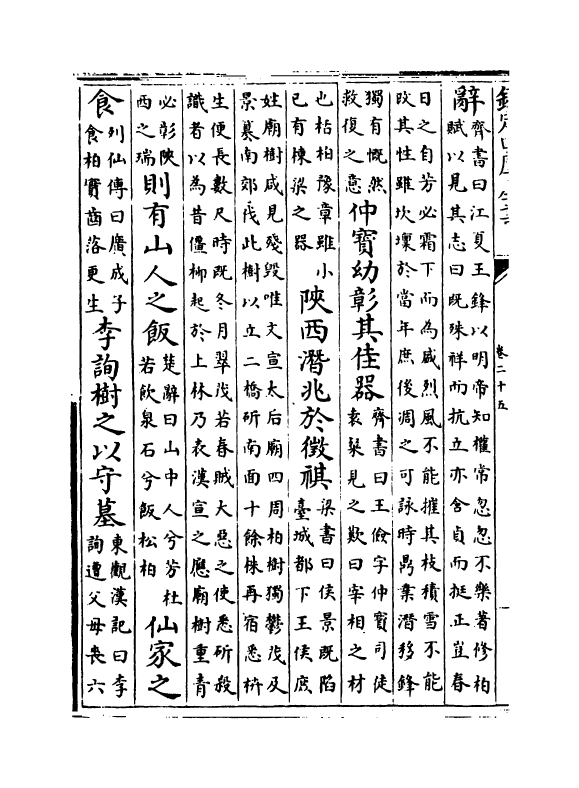 欽定四庫全書
卷二十五
辭
齊書曰江夏王鋒以明帝知權常忽忽不樂著修柏
賦以見其志曰既殊祥而抗立亦含貞而挺正豈春
日之自芳必霜下而為盛烈風不能摧其枝積雪不能
改其性雖坎壈於當年庶後凋之可詠時鼎業潛移鋒
獨有慨然
救復之意
仲寶幼彰其佳器
齊書曰王儉字仲寶司徒
袁粲見之歎曰宰相之材
也枯柏豫章雖小
已有棟梁之器
陝西潛兆於徵祺
梁書曰侯景既陷
臺城都下王侯庶
姓廟樹咸見殘毀唯文宣太后廟四周柏樹獨鬱茂及
景篡南郊伐此樹以立二橋斫南面十餘株再宿悉枿
生便長數尺時既冬月翠茂若春賊大惡之使悉斫殺
識者以為昔僵柳起於上林乃表漢宣之應廟樹重青
必彰陝
西之瑞
則有山人之飯
楚辭曰山中人兮芳杜
若飲泉石兮飯松柏
仙家之
食
列仙傳曰廣成子
食柏實齒落更生
李詢樹之以守墓
東觀漢記曰李
詢遭父母喪六